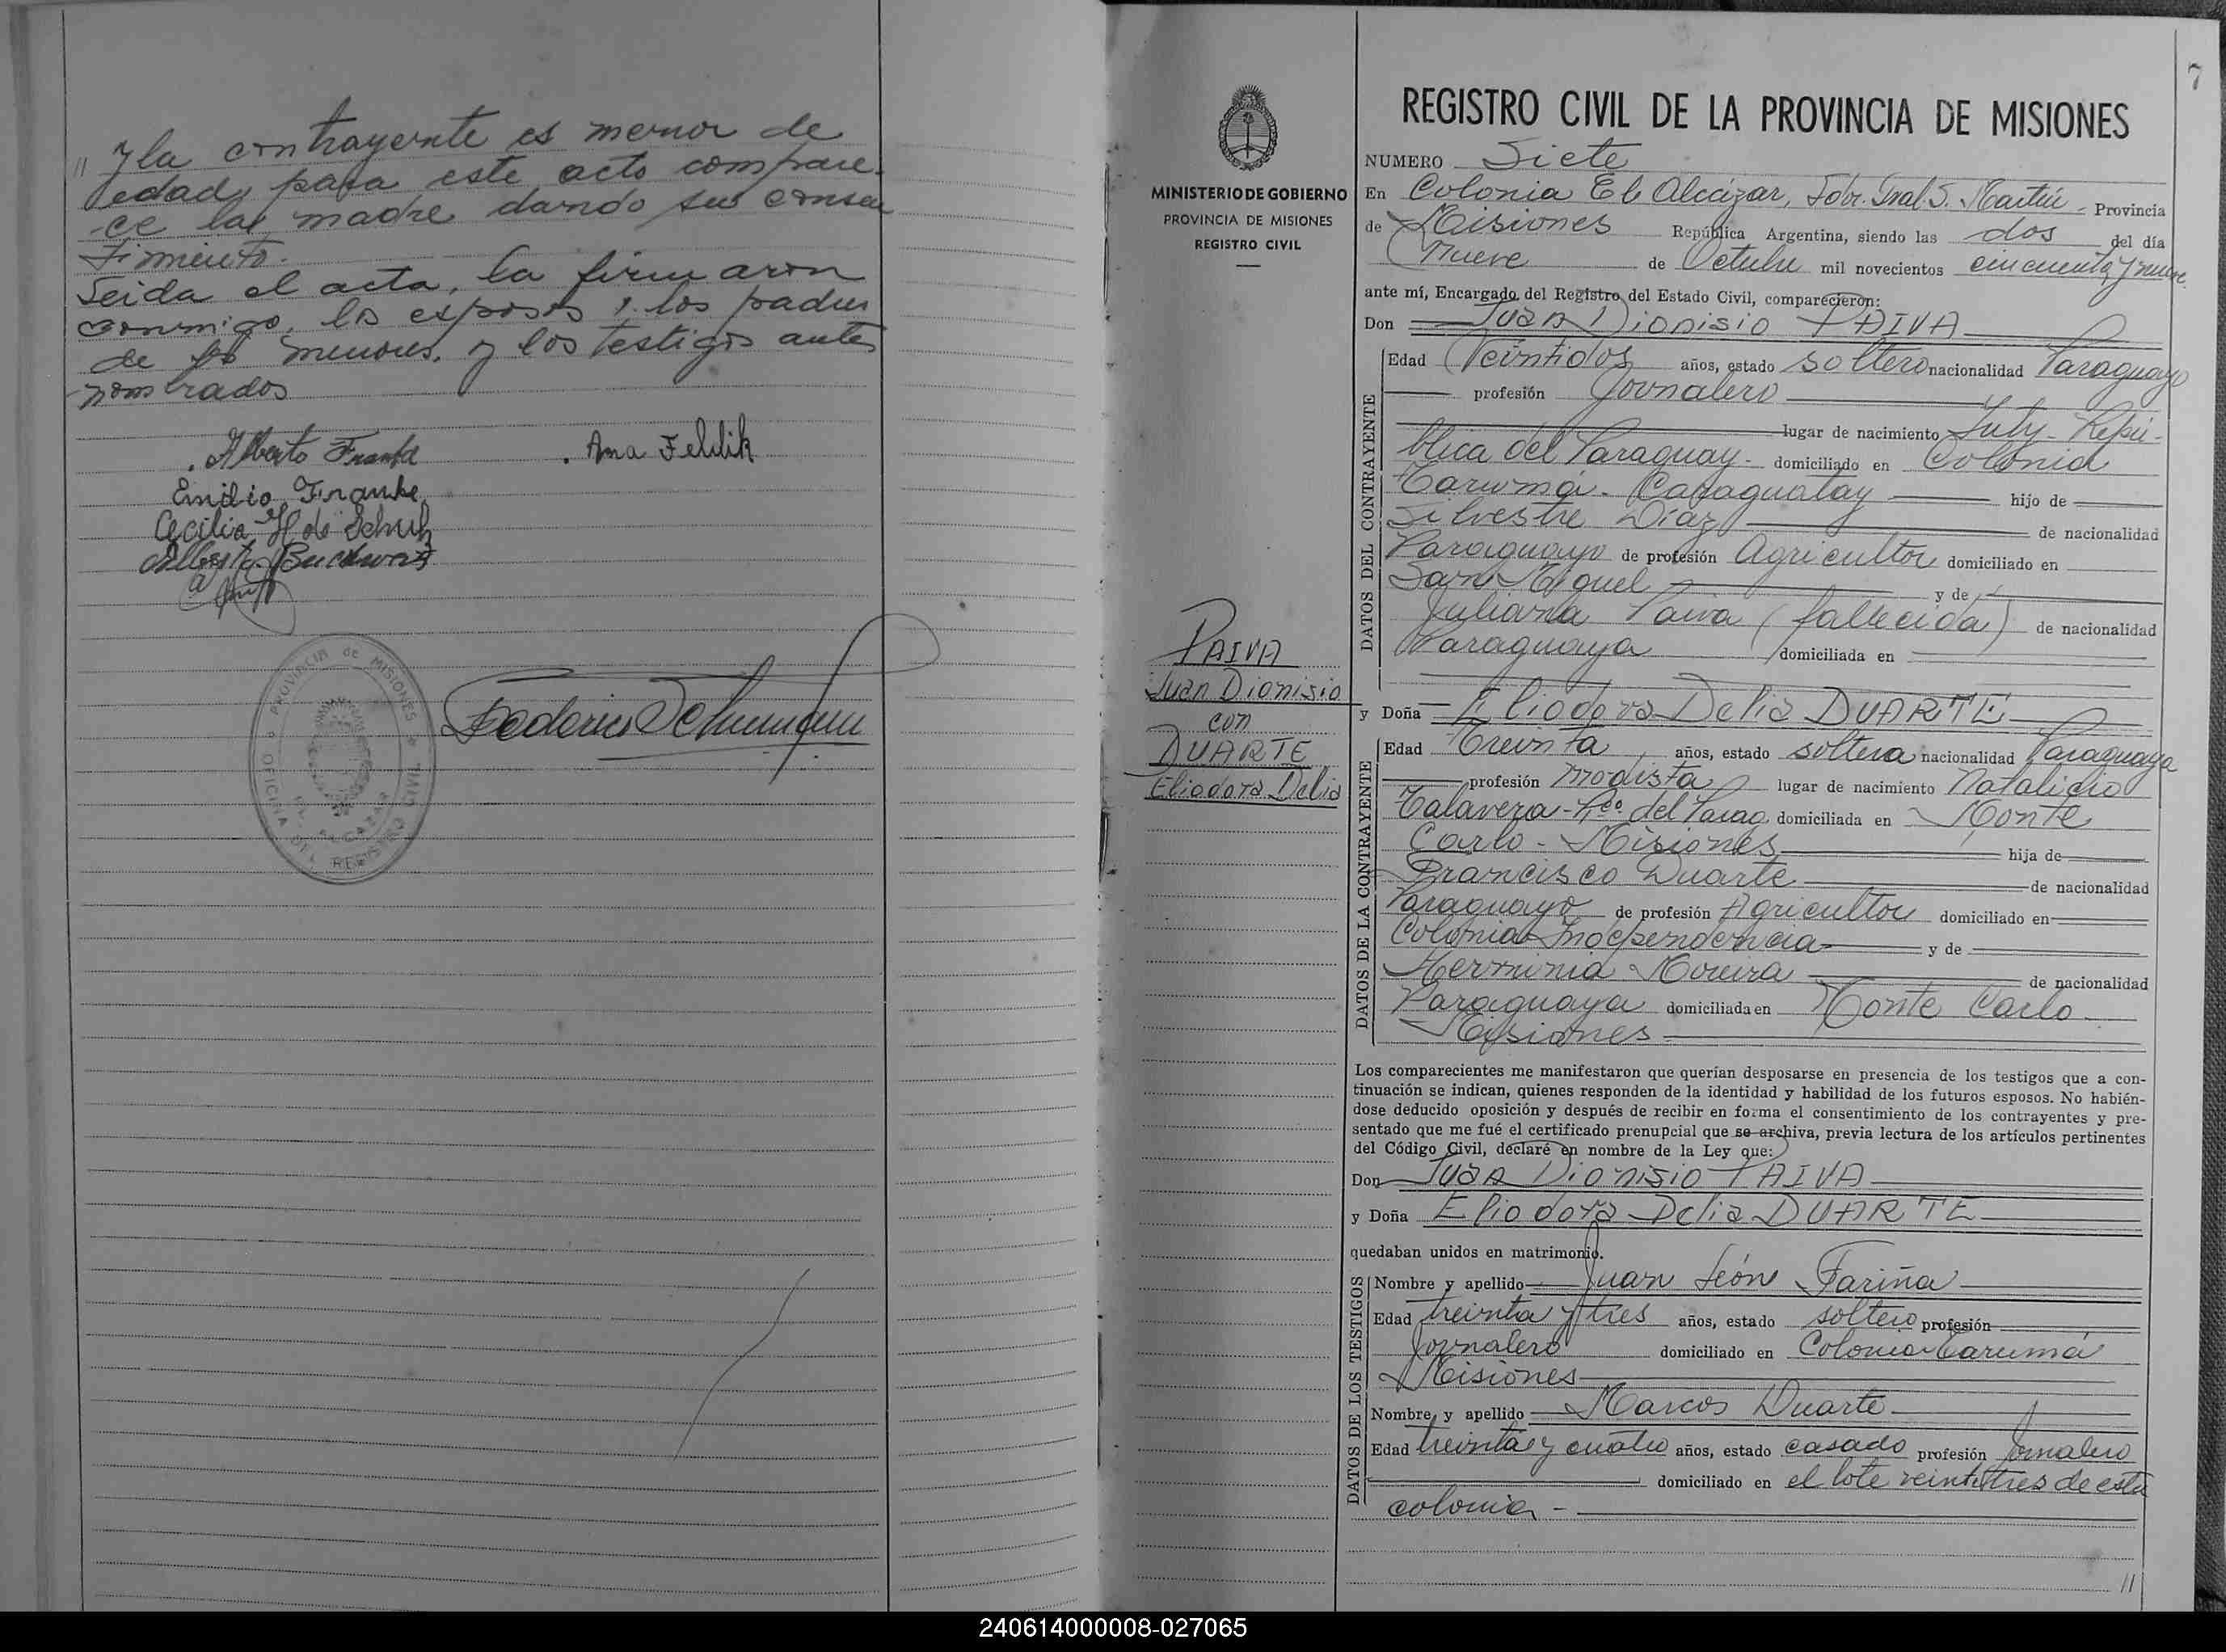 // y la contrayente es menor de
edad, para este acto compare-
ce la madre dando su consen
timiento.
Leida el acta, la firmaron
conmigo, los esposos, los padres
de los menores, y los testigos antes
nombrados
Alberto Franke . Ana Feldik
Emilio Franke
Cecilia H de Schuh
Federico
PROVINCIA de MISIONES
OFICINA DEL REGISTRO CIVIL
EL ALCAZAR
MINISTERIO DE GOBIERNO
PROVINCIA DE MISIONES
REGISTRO CIVIL
PAIVA
Juan Dionisio
con
DUARTE
Eliodora Delia
7
REGISTRO CIVIL DE LA PROVINCIA DE MISIONES
NUMERO Siete
En Colonia El Alcázar, Gral. S. Martín - Provincia
de Misiones República Argentina, siendo las dos del día
Nueve de Octubre mil novecientos cincuenta y nueve
ante mí, Encargado del Registro del Estado Civil, comparecieron:
Don Juan Dionisio PAIVA
DATOS DEL CONTRAYENTE
Edad Veintidos años, estado soltero nacionalidad Paraguayo
profesión Jornalero
lugar de nacimiento Yuty - Repú-
blica del Paraguay - domiciliado en Colonia
Taruma. Caraguatay hijo de
Silvestre Díaz de nacionalidad
Paraguayo de profesión Agricultor domiciliado en
San Miguel y de
Juliana Paiva (fallecida) de nacionalidad
Paraguaya domiciliada en
y Doña Eliodora Delia DUARTE
DATOS DE LA CONTRAYENTE
Edad Treinta años, estado soltera nacionalidad Paraguaya
profesión modista lugar de nacimiento Natalicio
Talavera - Rca. del Parag. domiciliada en Monte
Carlo - Misiones hija de
Francisco Duarte de nacionalidad
Paraguayo de profesión Agricultor domiciliado en
Colonia Independencia y de
Herminia Moreira de nacionalidad
Paraguaya domiciliada en Monte Carlo.
Misiones
Los comparecientes me manifestaron que querían desposarse en presencia de los testigos que a con-
tinuación se indican, quienes responden de la identidad y habilidad de los futuros esposos. No habién-
dose deducido oposición y después de recibir en forma el consentimiento de los contrayentes y pre-
sentado que me fué el certificado prenupcial que se archiva, previa lectura de los artículos pertinentes
del Código Civil, declaré en nombre de la Ley que:
Don Juan Dionisio PAIVA
y Doña Eliodora Delia DUARTE
quedaban unidos en matrimonio.
DATOS DE LOS TESTIGOS
Nombre y apellido Juan León Fariña
Edad treinta y tres años, estado soltero profesión
Jornalero domiciliado en Colonia Tarumá
Misiones
Nombre y apellido Marcos Duarte
Edad treinta y cuatro años, estado casado profesión Jornalero
domiciliado en el lote veintitres de esta
colonia -
//
240614000008-027065